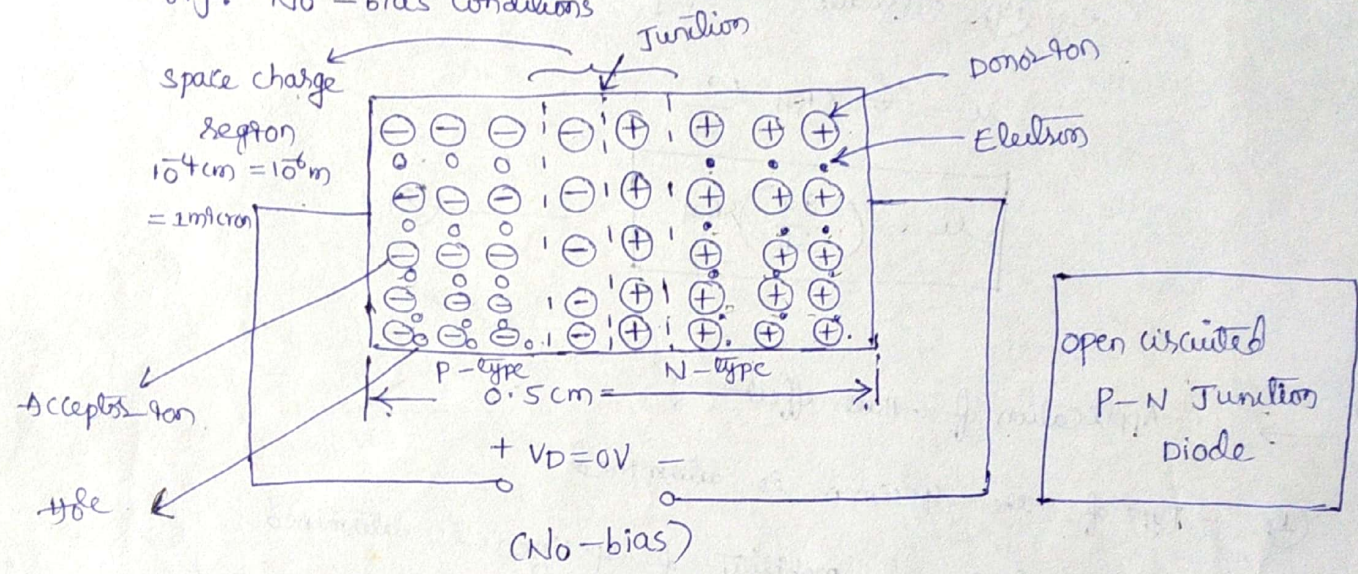 No-bias conditions
Junction
space charge
region
10⁻⁴cm = 10⁻⁶m
= 1micron
Donor Ion
Electron
P-type
N-type
0.5cm
Acceptor Ion
+ VD=0V -
(No-bias)
open circuited
P-N Junction
Diode